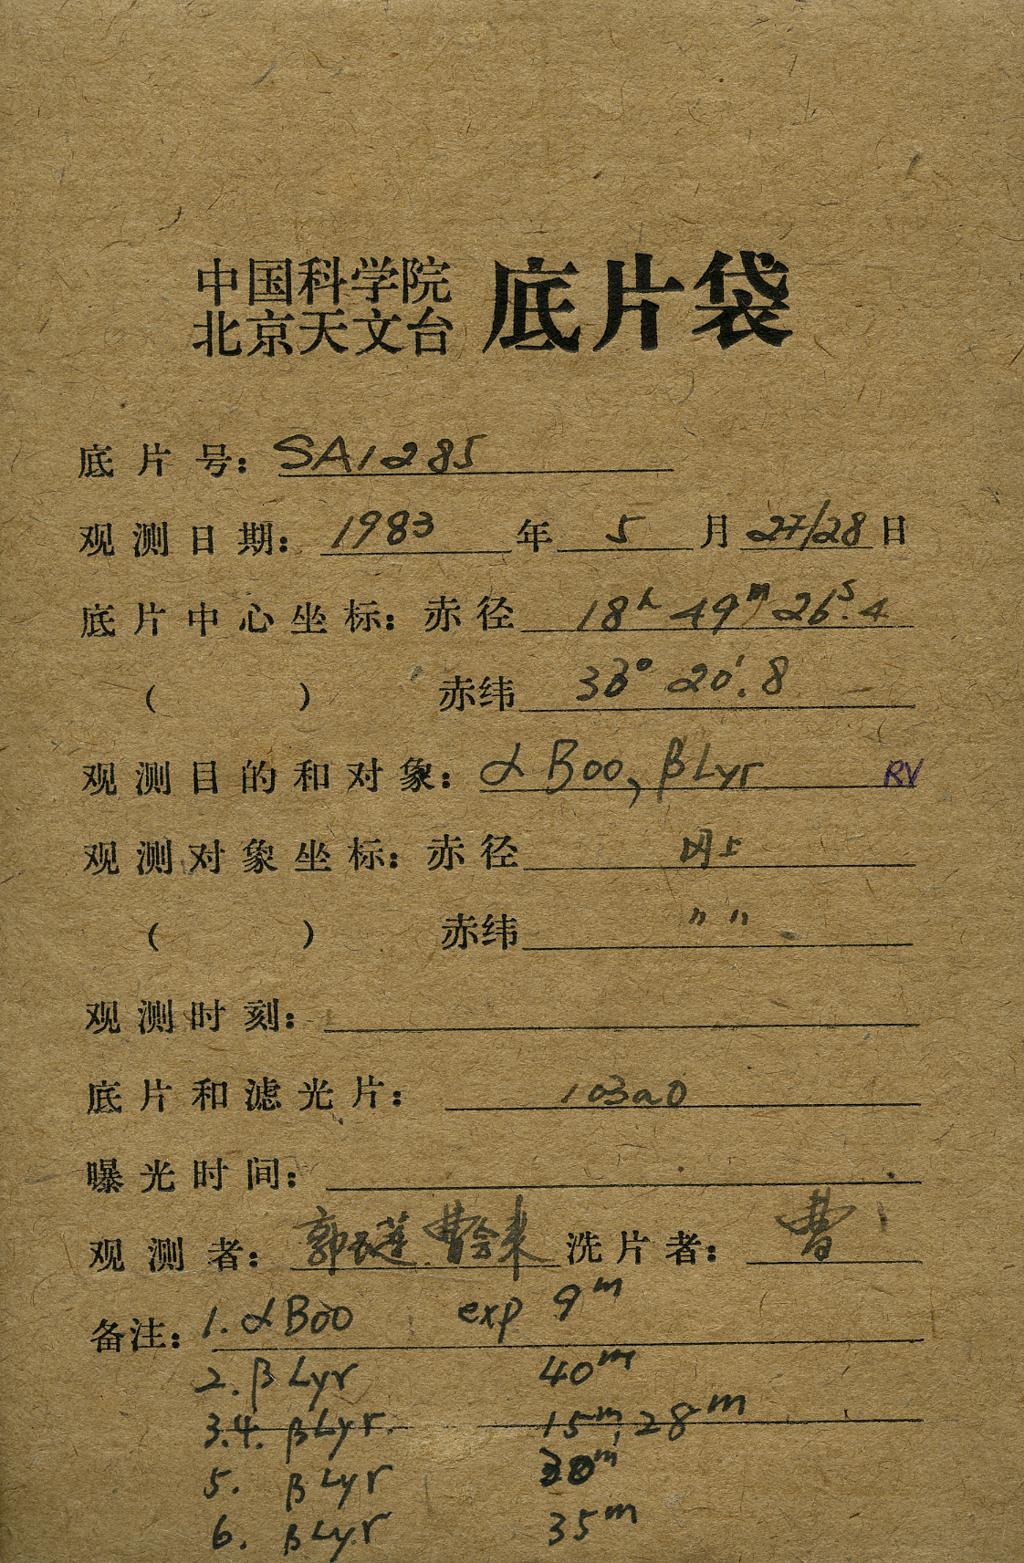 中国科学院
北京天文台
底片袋
底片号: SA1285
观测日期: 1983 年 5 月 27/28 日
底片中心坐标: 赤径 18h 49m 26s.4
( ) 赤纬 33° 20'.8
观测目的和对象: α Boo, β Lyr RV
观测对象坐标: 赤径 同上
( ) 赤纬 〃 〃
观测时刻:
底片和滤光片: 103aO
曝光时间:
观测者: 郭 莲 曹会来 洗片者: 曹
备注: 1. α Boo exp 9m
2. β Lyr 40m
3.4. β Lyr. 15m, 28m
5. β Lyr 20m
6. β Lyr 35m